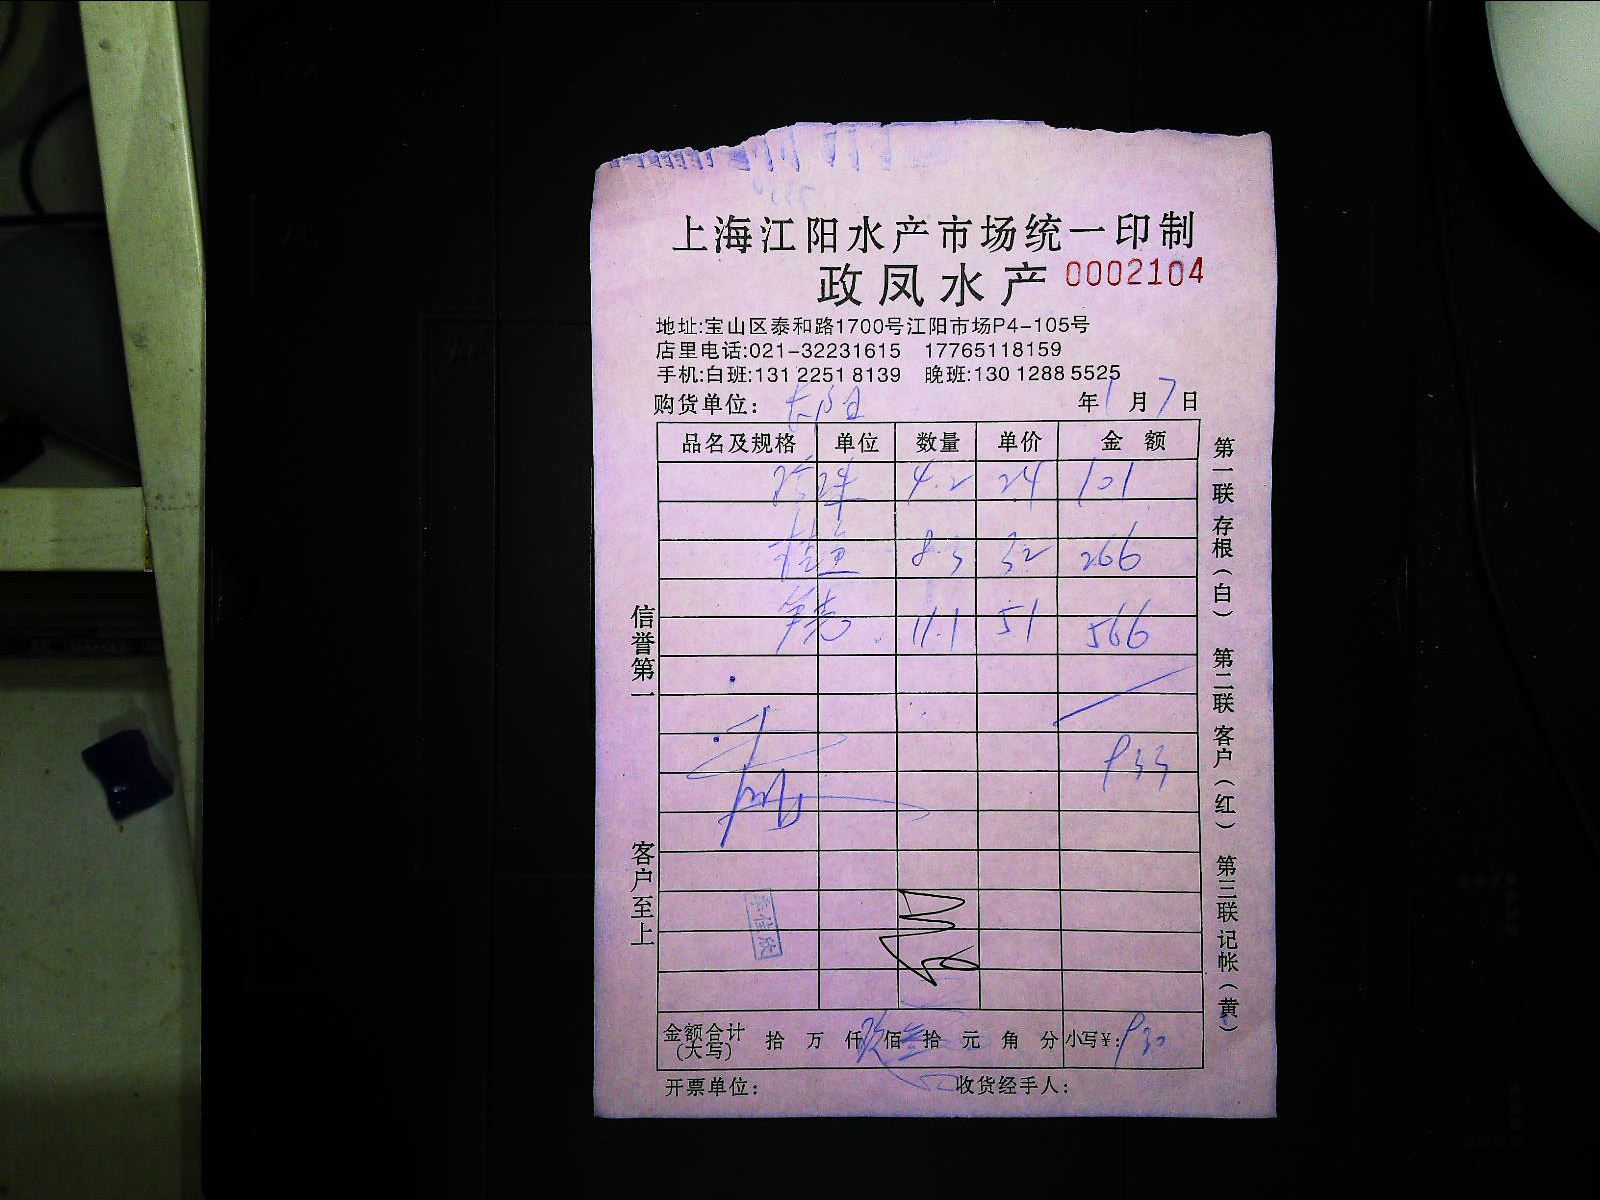 上海江阳水产市场统一印制
政凤水产 0002104
地址:宝山区泰和路1700号江阳市场P4-105号
店里电话:021-32231615 17765118159
手机:白班:131 2251 8139 晚班:130 1288 5525
购货单位: 年1月7日
品名及规格 单位 数量 单价 金额
4.2 24 101
桂鱼 8.3 32 266
11.1 51 566
933
金额合计(大写) 拾 万 仟 玖 佰 叁 拾 元 角 分 小写¥: 930
开票单位: 收货经手人:
信誉第一
客户至上
第一联存根(白) 第二联客户(红) 第三联记帐(黄)